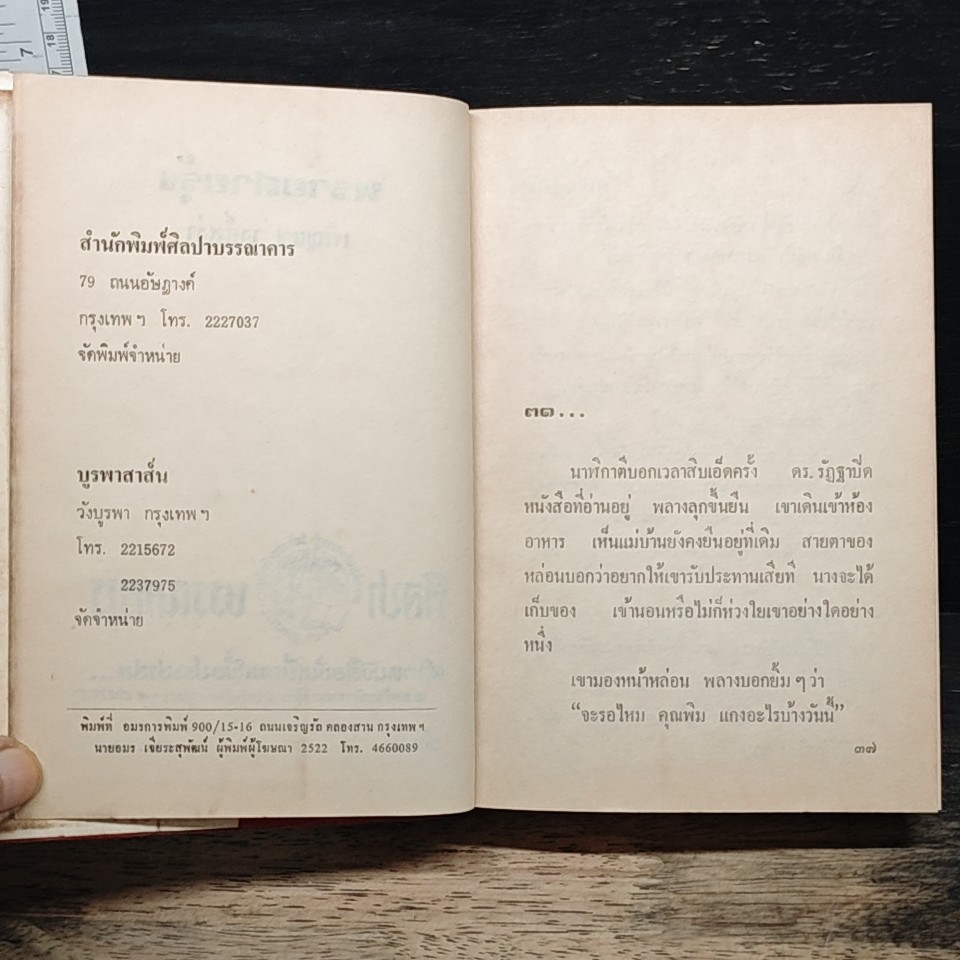 สำนักพิมพ์ศิลปาบรรณาคาร
79 ถนนอัษฎางค์
กรุงเทพ ฯ โทร. 2227037
จัดพิมพ์จำหน่าย
บูรพาสาส์น
วังบูรพา กรุงเทพ ฯ
โทร. 2215672
2237975
จัดจำหน่าย
พิมพ์ที่ อมรการพิมพ์ 900/15-16 ถนนเจริญรัถ คลองสาน กรุงเทพ ฯ
นายอมร เจียระสุพัฒน์ ผู้พิมพ์ผู้โฆษณา 2522 โทร. 4660089
๓๑...
นาฬิกาตีบอกเวลาสิบเอ็ดครั้ง ดร. รัฏฐาปิด
หนังสือที่อ่านอยู่ พลางลุกขึ้นยืน เขาเดินเข้าห้อง
อาหาร เห็นแม่บ้านยังคงยืนอยู่ที่เดิม สายตาของ
หล่อนบอกว่าอยากให้เขารับประทานเสียที นางจะได้
เก็บของ เข้านอนหรือไม่ก็ห่วงใยเขาอย่างใดอย่าง
หนึ่ง
เขามองหน้าหล่อน พลางบอกยิ้ม ๆ ว่า
“จะรอไหม คุณพิม แกงอะไรบ้างวันนี้”
๓๗
7
18
17